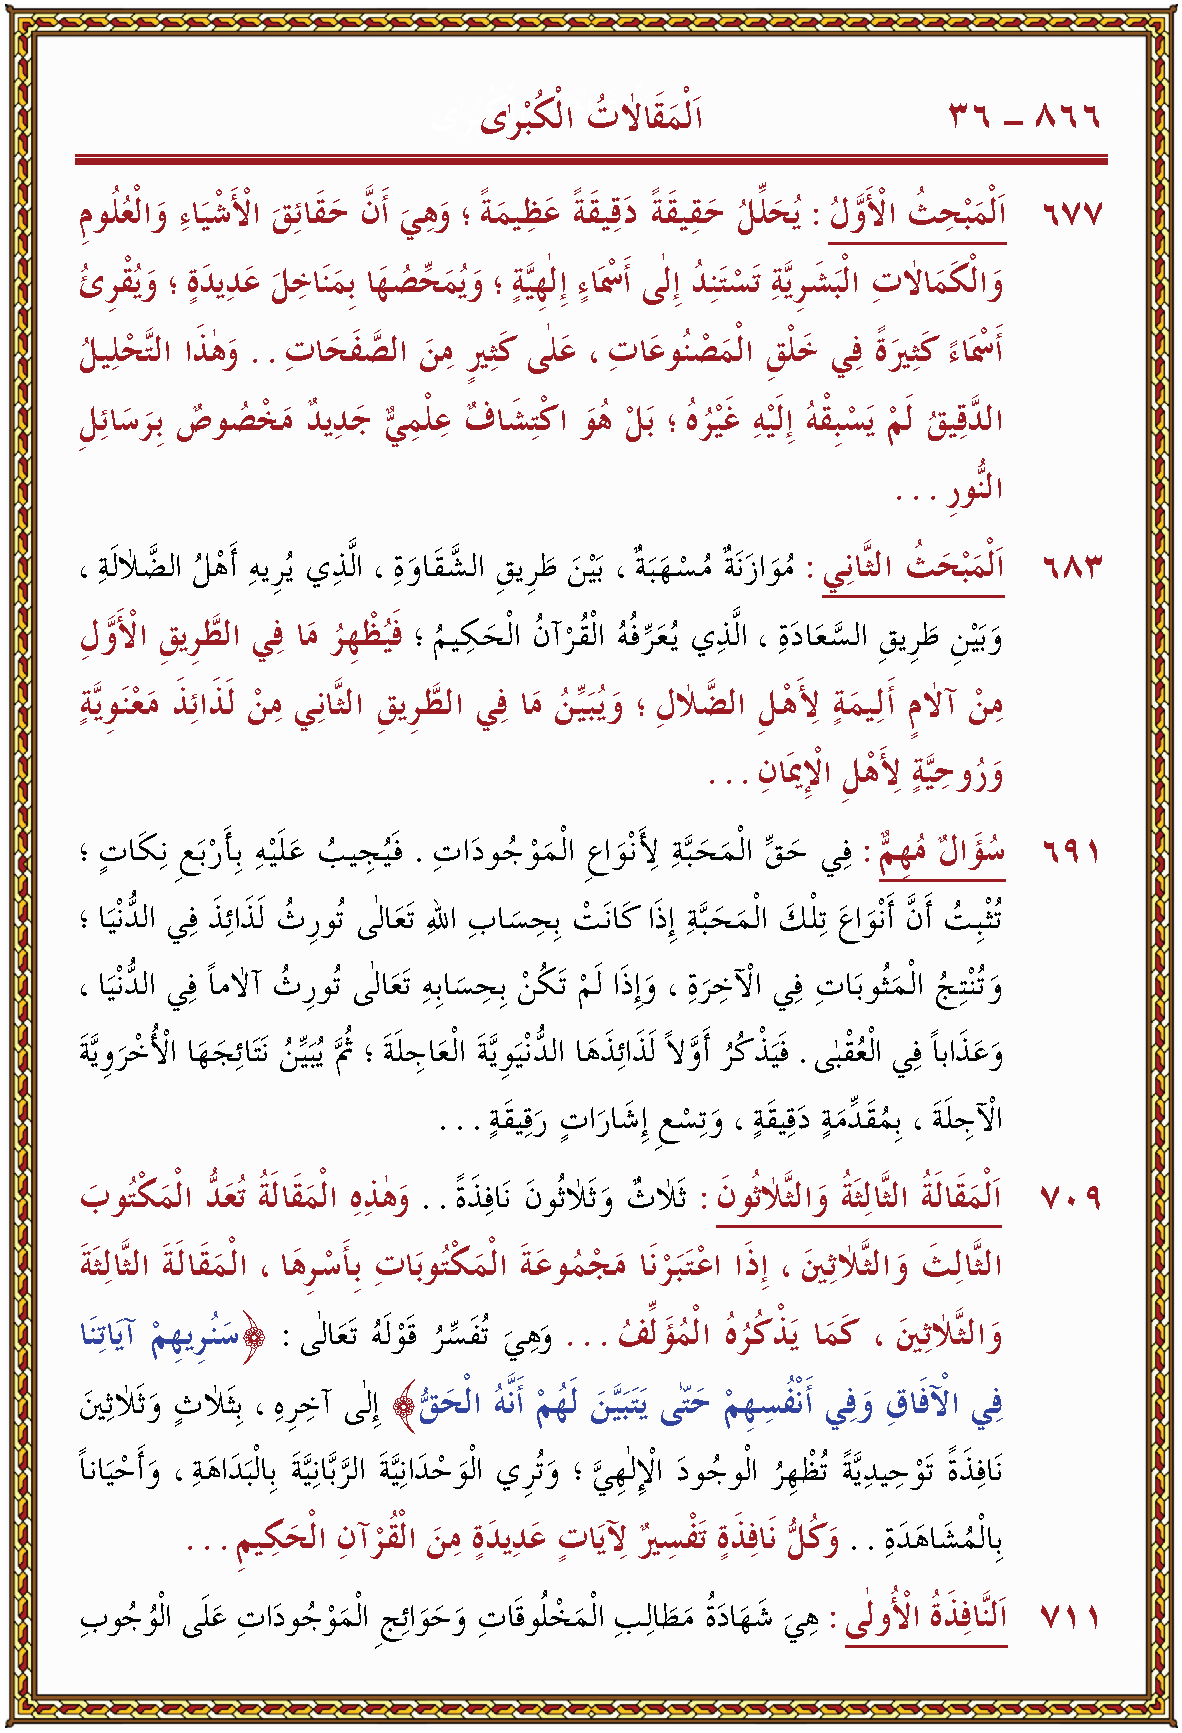 ٨٦٦ – ٣٦ اَلْمَقَالَاتُ الْكُبْرٰى
٦٧٧ اَلْمَبْحِثُ الْأَوَّلُ : يُحَلِّلُ حَقِيقَةً دَقِيقَةً عَظِيمَةً ؛ وَهِيَ أَنَّ حَقَائِقَ الْأَشْيَاءِ وَالْعُلُومِ
وَالْكَمَالَاتِ الْبَشَرِيَّةِ تَسْتَنِدُ إِلٰى أَسْمَاءٍ إِلٰهِيَّةٍ ؛ وَيُمَحِّصُهَا بِمَنَاخِلَ عَدِيدَةٍ ؛ وَيُقْرِئُ
أَسْمَاءً كَثِيرَةً فِي خَلْقِ الْمَصْنُوعَاتِ ، عَلٰى كَثِيرٍ مِنَ الصَّفَحَاتِ . . وَهٰذَا التَّحْلِيلُ
الدَّقِيقُ لَمْ يَسْبِقْهُ إِلَيْهِ غَيْرُهُ ؛ بَلْ هُوَ اكْتِشَافٌ عِلْمِيٌّ جَدِيدٌ مَخْصُوصٌ بِرَسَائِلِ
النُّورِ . . .
٦٨٣ اَلْمَبْحَثُ الثَّانِي : مُوَازَنَةٌ مُسْهَبَةٌ ، بَيْنَ طَرِيقِ الشَّقَاوَةِ ، الَّذِي يُرِيهِ أَهْلُ الضَّلَالَةِ ،
وَبَيْنِ طَرِيقِ السَّعَادَةِ ، الَّذِي يُعَرِّفُهُ الْقُرْآنُ الْحَكِيمُ ؛ فَيُظْهِرُ مَا فِي الطَّرِيقِ الْأَوَّلِ
مِنْ آلَامٍ أَلِيمَةٍ لِأَهْلِ الضَّلَالِ ؛ وَيُبَيِّنُ مَا فِي الطَّرِيقِ الثَّانِي مِنْ لَذَائِذَ مَعْنَوِيَّةٍ
وَرُوحِيَّةٍ لِأَهْلِ الْإِيمَانِ . . .
٦٩١ سُؤَالٌ مُهِمٌّ : فِي حَقِّ الْمَحَبَّةِ لِأَنْوَاعِ الْمَوْجُودَاتِ . فَيُجِيبُ عَلَيْهِ بِأَرْبَعِ نِكَاتٍ ؛
تُثْبِتُ أَنَّ أَنْوَاعَ تِلْكَ الْمَحَبَّةِ إِذَا كَانَتْ بِحِسَابِ اللهِ تَعَالٰى تُورِثُ لَذَائِذَ فِي الدُّنْيَا ؛
وَتُنْتِجُ الْمَثُوبَاتِ فِي الْآخِرَةِ ، وَإِذَا لَمْ تَكُنْ بِحِسَابِهِ تَعَالٰى تُورِثُ آلَاماً فِي الدُّنْيَا ،
وَعَذَاباً فِي الْعُقْبٰى . فَيَذْكُرُ أَوَّلًا لَذَائِذَهَا الدُّنْيَوِيَّةَ الْعَاجِلَةَ ؛ ثُمَّ يُبَيِّنُ نَتَائِجَهَا الْأُخْرَوِيَّةَ
الْآجِلَةَ ، بِمُقَدِّمَةٍ دَقِيقَةٍ ، وَتِسْعِ إِشَارَاتٍ رَقِيقَةٍ . . .
٧٠٩ اَلْمَقَالَةُ الثَّالِثَةُ وَالثَّلَاثُونَ : ثَلَاثٌ وَثَلَاثُونَ نَافِذَةً . . وَهٰذِهِ الْمَقَالَةُ تُعَدُّ الْمَكْتُوبَ
الثَّالِثَ وَالثَّلَاثِينَ ، إِذَا اعْتَبَرْنَا مَجْمُوعَةَ الْمَكْتُوبَاتِ بِأَسْرِهَا ، الْمَقَالَةَ الثَّالِثَةَ
وَالثَّلَاثِينَ ، كَمَا يَذْكُرُهُ الْمُؤَلِّفُ . . . وَهِيَ تُفَسِّرُ قَوْلَهُ تَعَالٰى : ﴿سَنُرِيهِمْ آيَاتِنَا
فِي الْآفَاقِ وَفِي أَنْفُسِهِمْ حَتّٰى يَتَبَيَّنَ لَهُمْ أَنَّهُ الْحَقُّ﴾ إِلٰى آخِرِهِ ، بِثَلَاثٍ وَثَلَاثِينَ
نَافِذَةً تَوْحِيدِيَّةً تُظْهِرُ الْوُجُودَ الْإِلٰهِيَّ ؛ وَتُرِي الْوَحْدَانِيَّةَ الرَّبَّانِيَّةَ بِالْبَدَاهَةِ ، وَأَحْيَاناً
بِالْمُشَاهَدَةِ . . وَكُلُّ نَافِذَةٍ تَفْسِيرٌ لِآيَاتٍ عَدِيدَةٍ مِنَ الْقُرْآنِ الْحَكِيمِ . . .
٧١١ اَلنَّافِذَةُ الْأُولٰى : هِيَ شَهَادَةُ مَطَالِبِ الْمَخْلُوقَاتِ وَحَوَائِجِ الْمَوْجُودَاتِ عَلَى الْوُجُوبِ